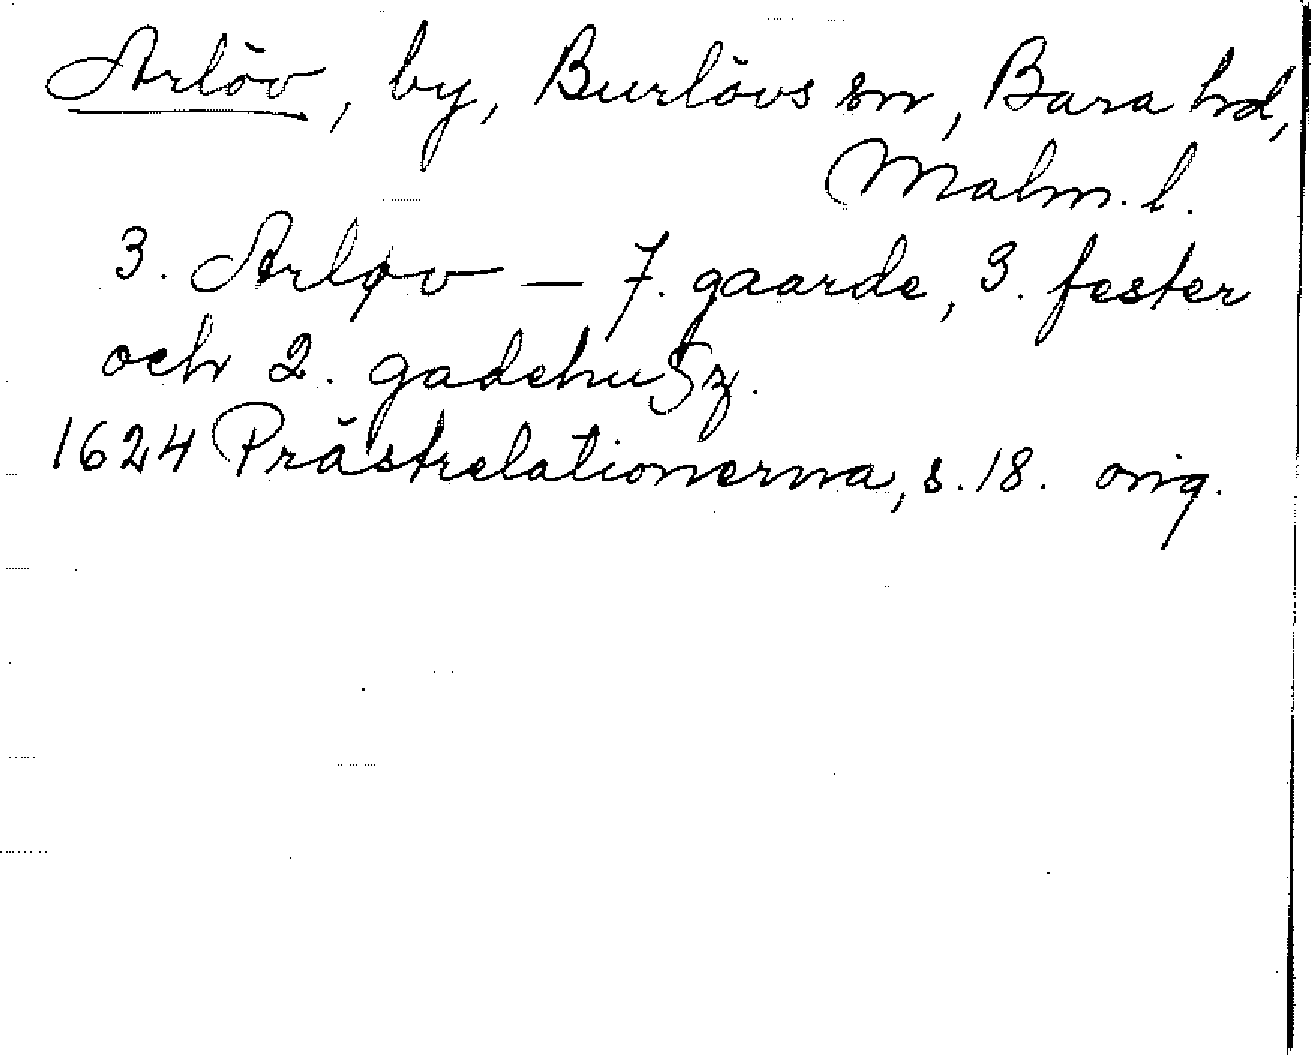 Arlöv, by, Burlövs sn, Bara hd,
Malm. l.
3. Arløv — 7. gaarde, 3. fester
och 2. gadehuſz.
1624 Prästrelationerna, s. 18. orig.